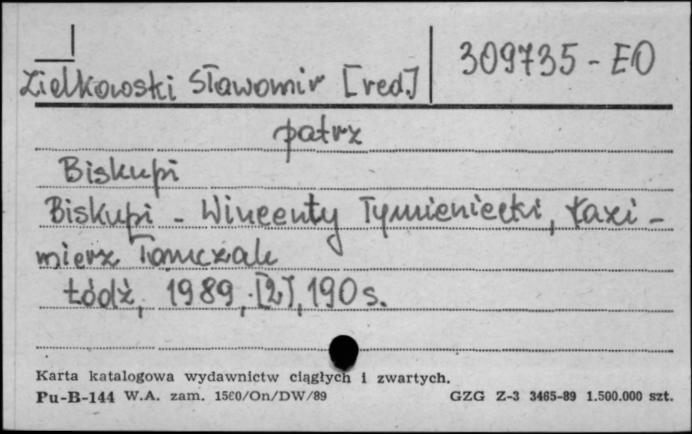 Zielkowski Sławomir [red]
309735-EO
patrz
Biskupi
Biskupi - Wincenty Tymieniecki, Kazi-
mierz Tomczak
Łódź, 1989, [2], 190 s.
Karta katalogowa wydawnictw ciągłych i zwartych.
Pu-B-144 W.A. zam. 1560/On/DW/89 GZG Z-3 3465-89 1.500.000 szt.